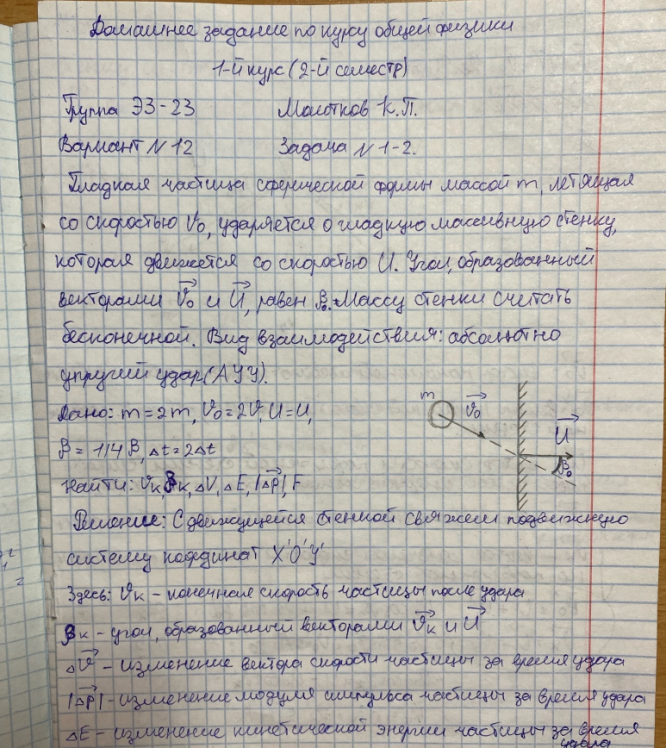 Домашнее задание по курсу общей физики
1-й курс (2-й семестр)
Группа Э3-23 Молотков К.П.
Вариант N 12 Задача N 1-2.
Гладкая частица сферической формы массой m, летящая
со скоростью V₀, ударяется о гладкую массивную стенку,
которая движется со скоростью U. Угол, образованный
векторами V₀ и U, равен β. Массу стенки считать
бесконечной. Вид взаимодействия: абсолютно
упругий удар (АУУ).
Дано: m = 2m, V₀ = 2V, U = U,
β = 1/4 β, Δt = 2Δt
Найти: Vк, βк, ΔV, ΔE, |Δp|, F
m V₀
U
β₀
Решение: С движущейся стенкой свяжем подвижную
систему координат X'O'Y'
Здесь: Vк - конечная скорость частицы после удара
βк - угол, образованный векторами Vк и U
ΔV - изменение вектора скорости частицы за время удара
|Δp| - изменение модуля импульса частицы за время удара
ΔE - изменение кинетической энергии частицы за время
удара